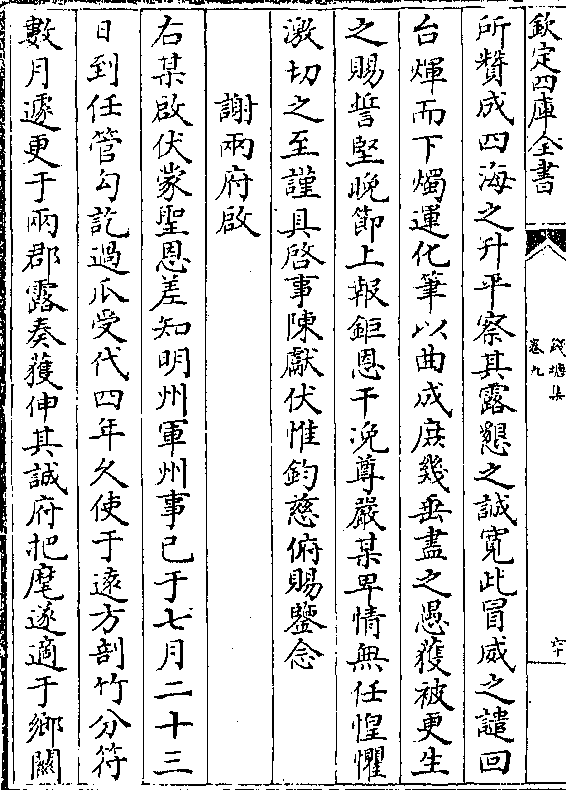 欽定四庫全書
錢塘集
卷九
六十
所贊成四海之升平察其露懇之誠寛此冒威之譴回
台煇而下燭運化筆以曲成庶幾垂盡之愚獲被更生
之賜誓堅晚節上報鉅恩干浼尊嚴某卑情無任惶懼
激切之至謹具啓事陳獻伏惟鈞慈俯賜鑒念
謝兩府啟
右某啟伏蒙聖恩差知明州軍州事已于七月二十三
日到任管勾訖過爪受代四年久使于遠方剖竹分符
數月遽更于兩郡露奏獲伸其誠府把麾遂適于鄉關